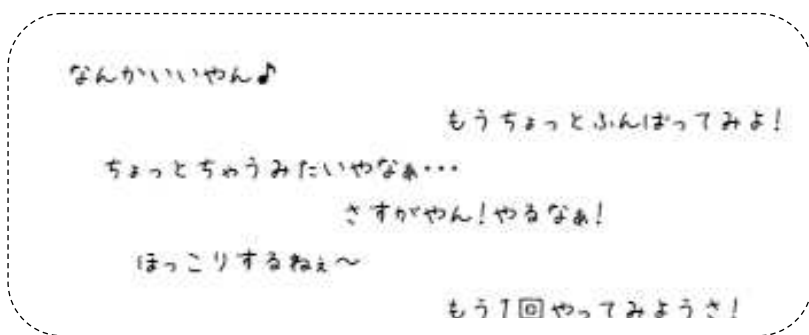 なんかいいやん♪
もうちょっとふんばってみよ!
ちょっとちゃうみたいやなぁ・・・
さすがやん!やるなぁ!
ほっこりするねぇ〜
もう1回やってみようさ!